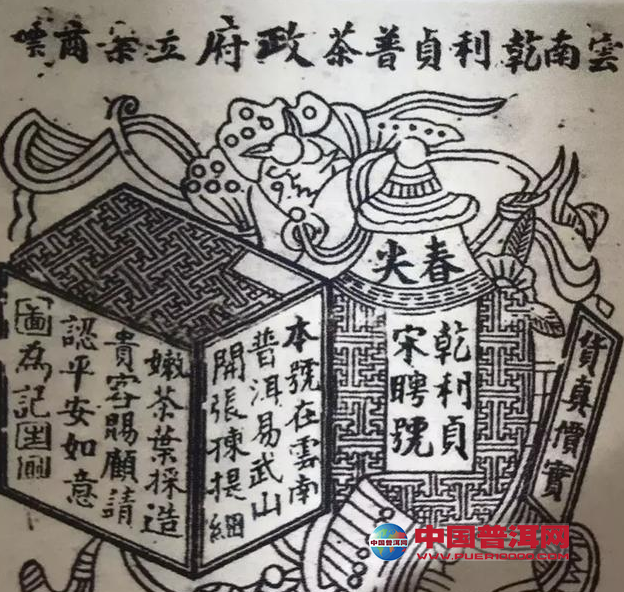 雲南乾利貞普茶政府立案商嘜
春尖
乾利貞
宋聘號
貨真價實
本號在雲南
普洱易武山
開張揀提細
嫩茶葉採造
貴客賜顧請
認平安如意
圖為記
中国普洱网
中国普洱网
WWW.PUER10000.COM